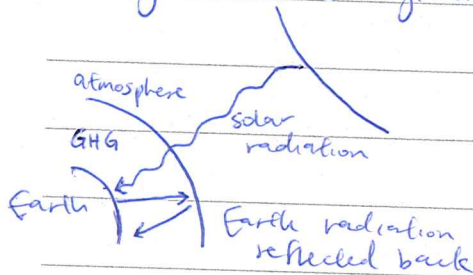 atmosphere
solar
radiation
GHG
Earth
Earth radiation
reflected back